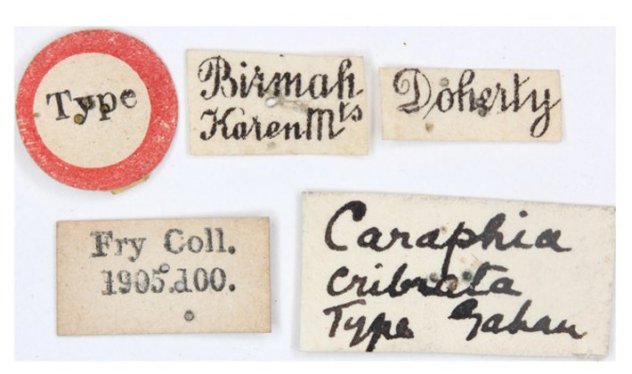 Type
Birmah
Karen Mts
Doherty
Fry Coll.
1905.100.
Caraphia
cribrata
Type Gahan